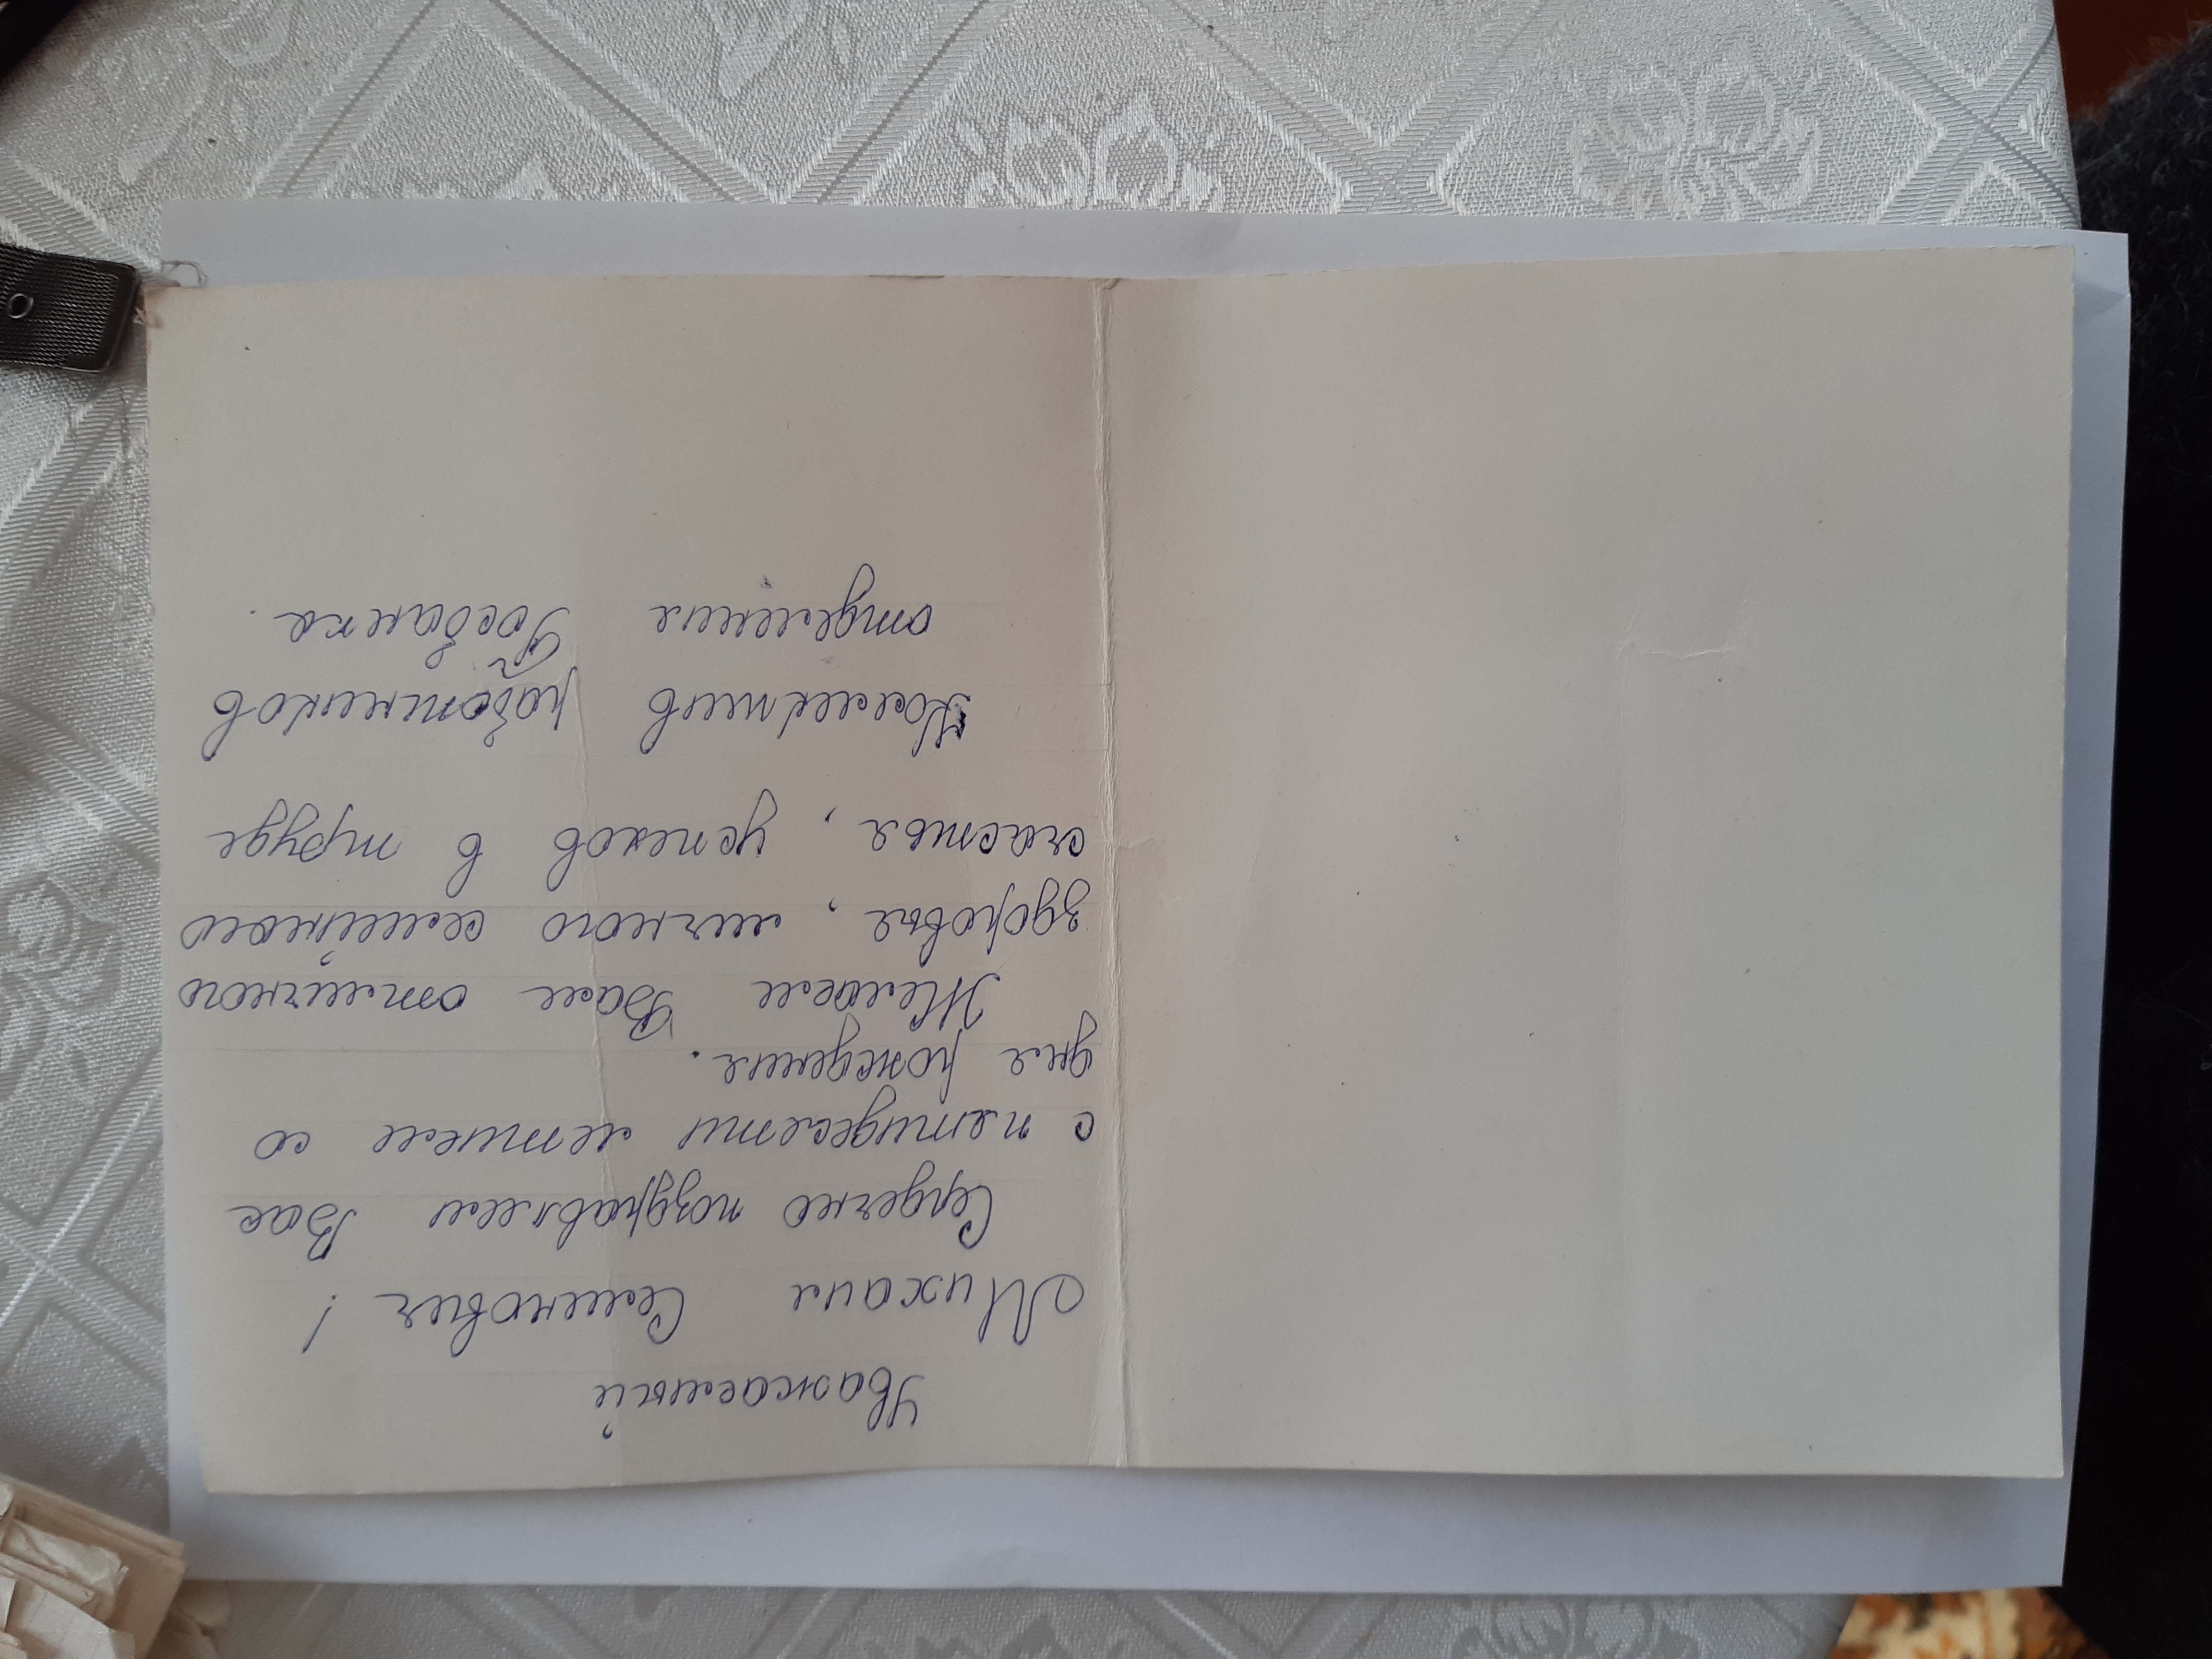 Уважаемый
Михаил Семенович!
Сердечно поздравляем Вас
с пятидесяти летием со
дня рождения.
Желаем Вам отличного
здоровья, личного семейного
счастья, успехов в труде
Коллектив работников
отделения Госбанка.